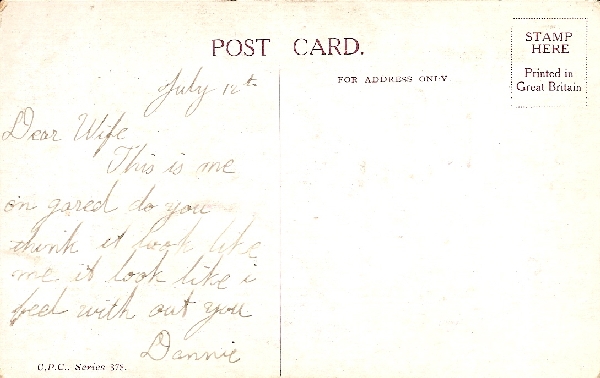 POST CARD.
STAMP
HERE
Printed in
Great Britain
FOR ADDRESS ONLY.
July 12th
Dear Wife
This is me
on gared do you
think it look like
me it look like i
feel with out you
Dannie
C.P.C., Series 378.